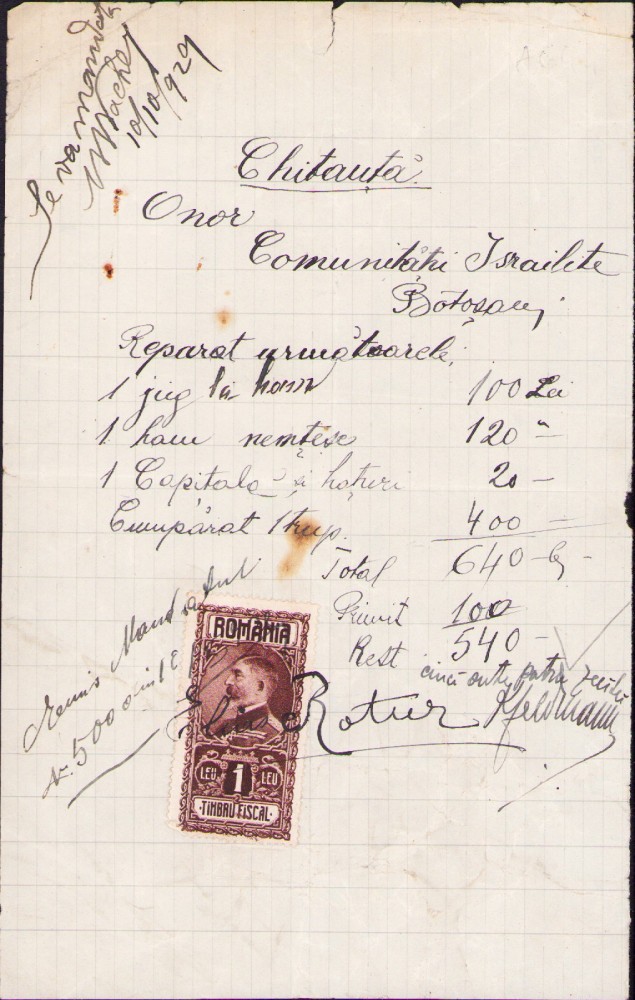 Se va mandata
10/10/929
Chitanță
Onor
Comunități Israilite
Botoșani
Reparat următoarele
1 jug la ham 100 Lei
1 ham nemțesc 120 "
1 Capitala și hațuri 20 —
Cumpărat 1 trup. 400 =
Total 640 lei
Primit 100
Rest 540 —
cinci sute patru zeci lei
Remis Mandatul
N. 500 din 12
ROMÂNIA
LEU 1 LEU
TIMBRU FISCAL
Rotur
Feldmann